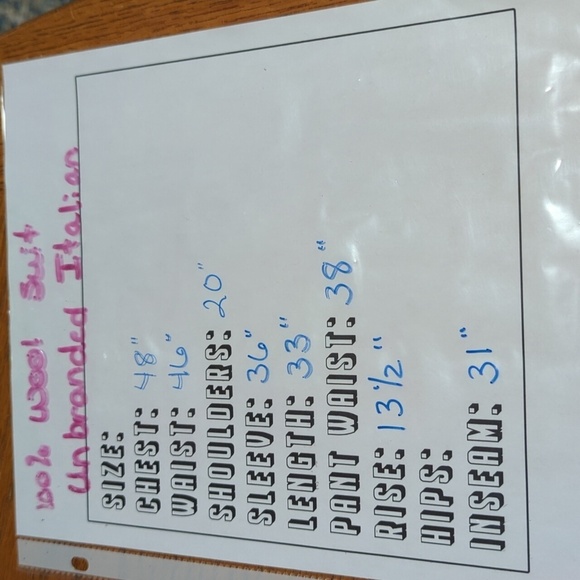 100% wool Suit
Unbranded Italian
SIZE:
CHEST: 48"
WAIST: 46"
SHOULDERS: 20"
SLEEVE: 36"
LENGTH: 33"
PANT WAIST: 38"
RISE: 13 1/2"
HIPS:
INSEAM: 31"